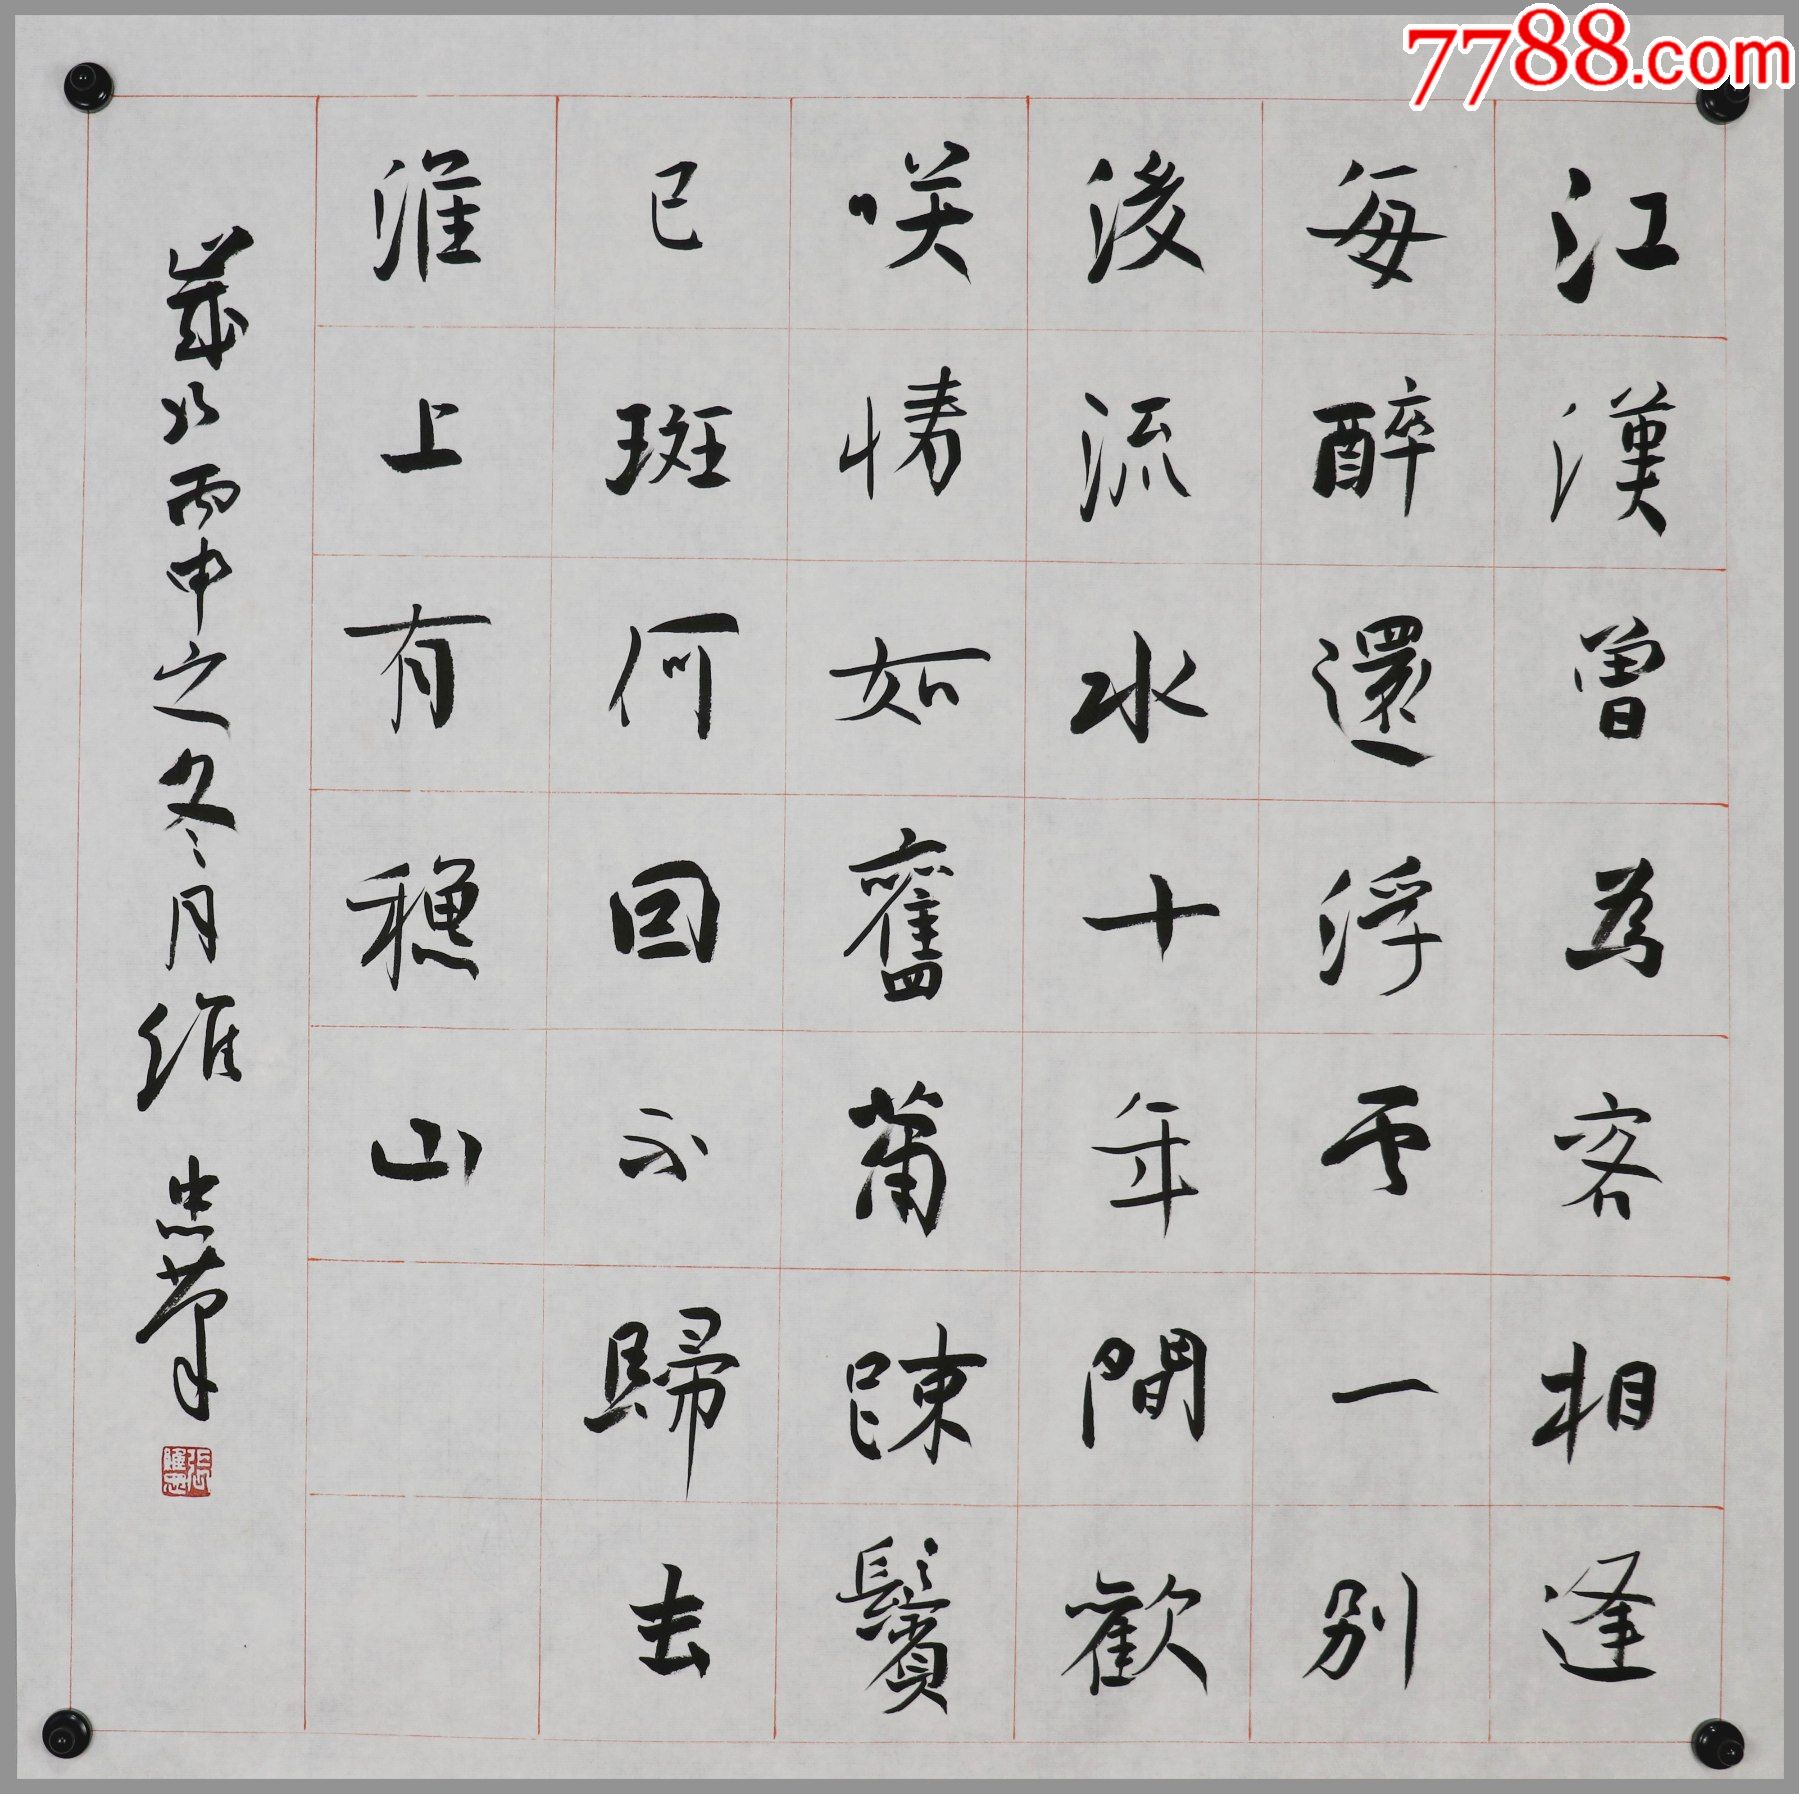 7788.com
江漢曾為客相逢
每醉還浮雲一別
後流水十年間歡
咲情如舊蕭踈鬢
已斑何因不歸去
淮上有穐山
歲次丙申之冬月維忠筆
張維忠